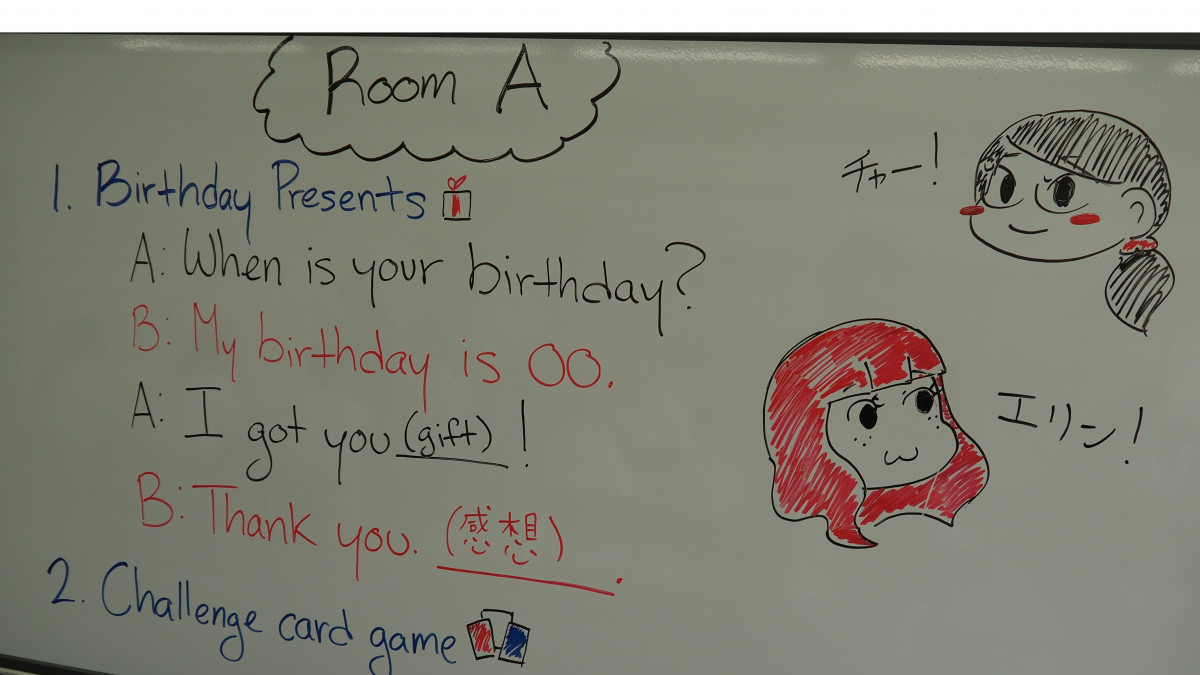 Room A
1. Birthday Presents
A: When is your birthday?
B: My birthday is OO.
A: I got you (gift)!
B: Thank you. (感想).
2. Challenge card game
チャー!
エリン!